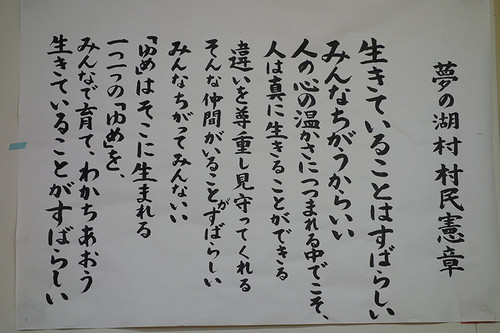 夢の湖村 村民憲章
生きていることはすばらしい
みんなちがうからいい
人の心の温かさにつつまれる中でこそ、
人は真に生きることができる
違いを尊重し見守ってくれる
そんな仲間がいることがすばらしい
みんなちがってみんないい
「ゆめ」はそこに生まれる
一つ一つの「ゆめ」を、
みんなで育て、わかちあおう
生きていることがすばらしい